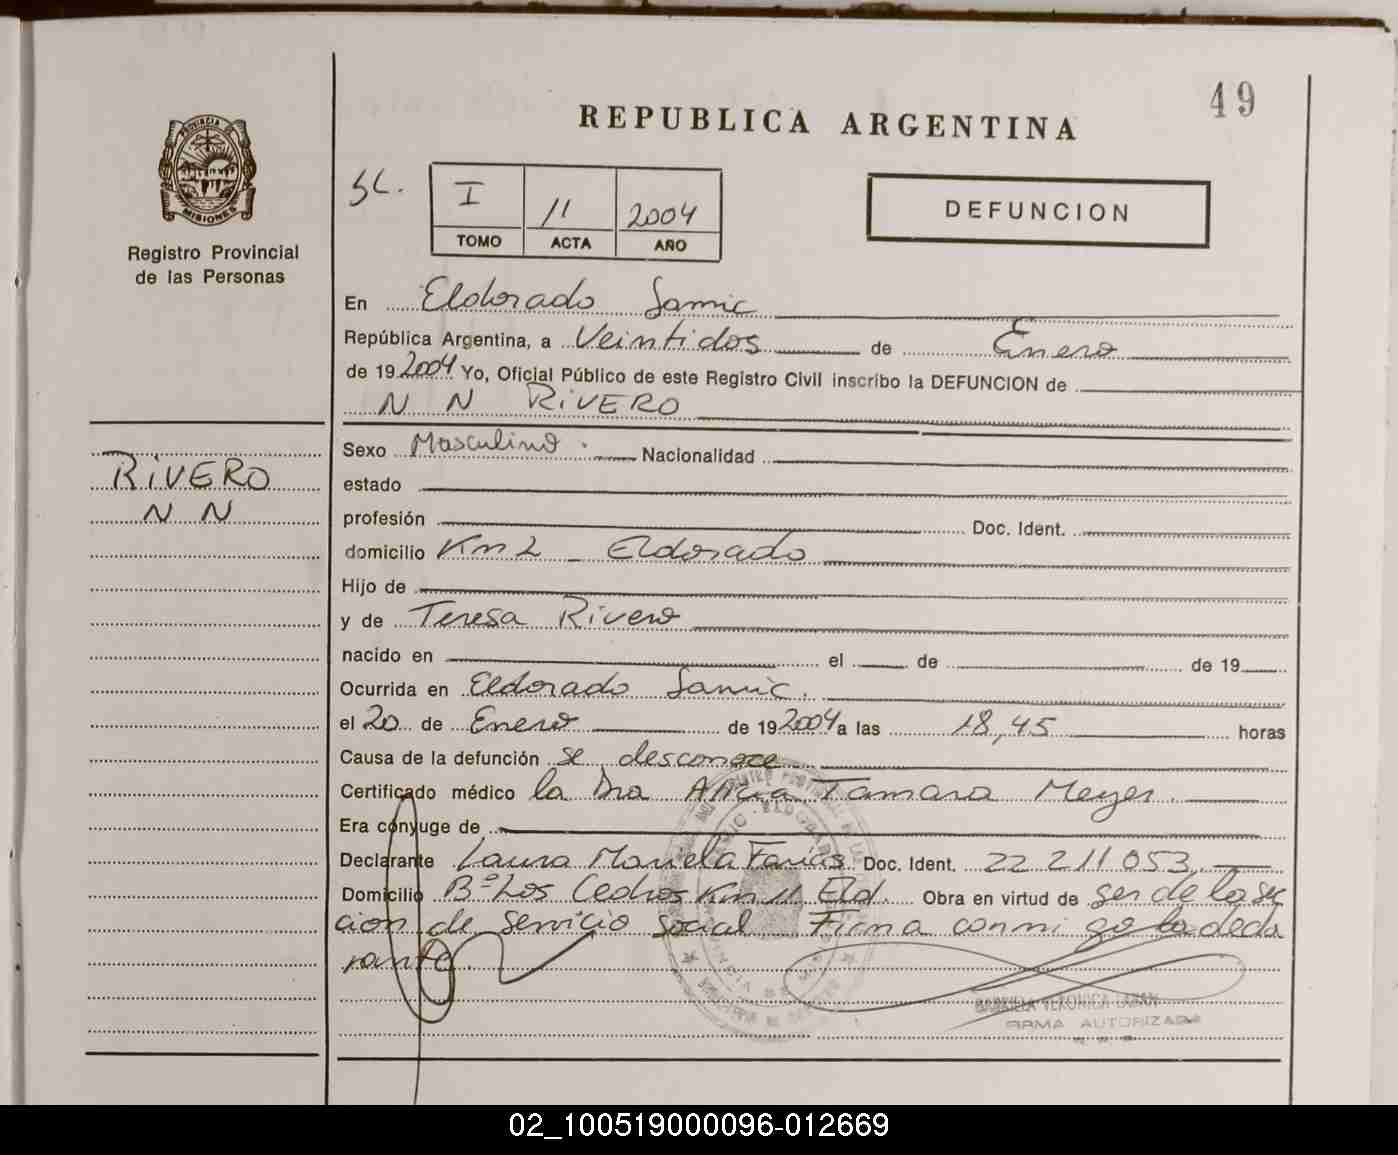 49
REPUBLICA ARGENTINA
PROVINCIA DE
MISIONES
Registro Provincial
de las Personas
SC.
I 11 2004
TOMO ACTA AÑO
DEFUNCION
En Eldorado Samic
República Argentina, a Veintidos de Enero
de 19 2004 Yo, Oficial Público de este Registro Civil inscribo la DEFUNCION de
N N RIVERO
RIVERO
N N
Sexo Masculino. Nacionalidad
estado
profesión Doc. Ident.
domicilio Km 2 Eldorado
Hijo de
y de Teresa Rivero
nacido en el de de 19
Ocurrida en Eldorado Samic.
el 20 de Enero de 19 2004 a las 18,45 horas
Causa de la defunción se desconoce
Certificado médico la Dra Alicia Tamara Meyer.
Era cónyuge de
Declarante Laura Mariela Farías Doc. Ident. 22 211 053,
Domicilio Bº Los Cedros Km 11 Eld. Obra en virtud de ser de la sec
cion de servicio social Firma conmigo la decla
rante.
FIRMA AUTORIZADA
02_100519000096-012669